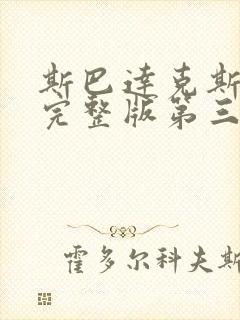 斯巴达克斯
完整版第三
霍多尔科夫斯